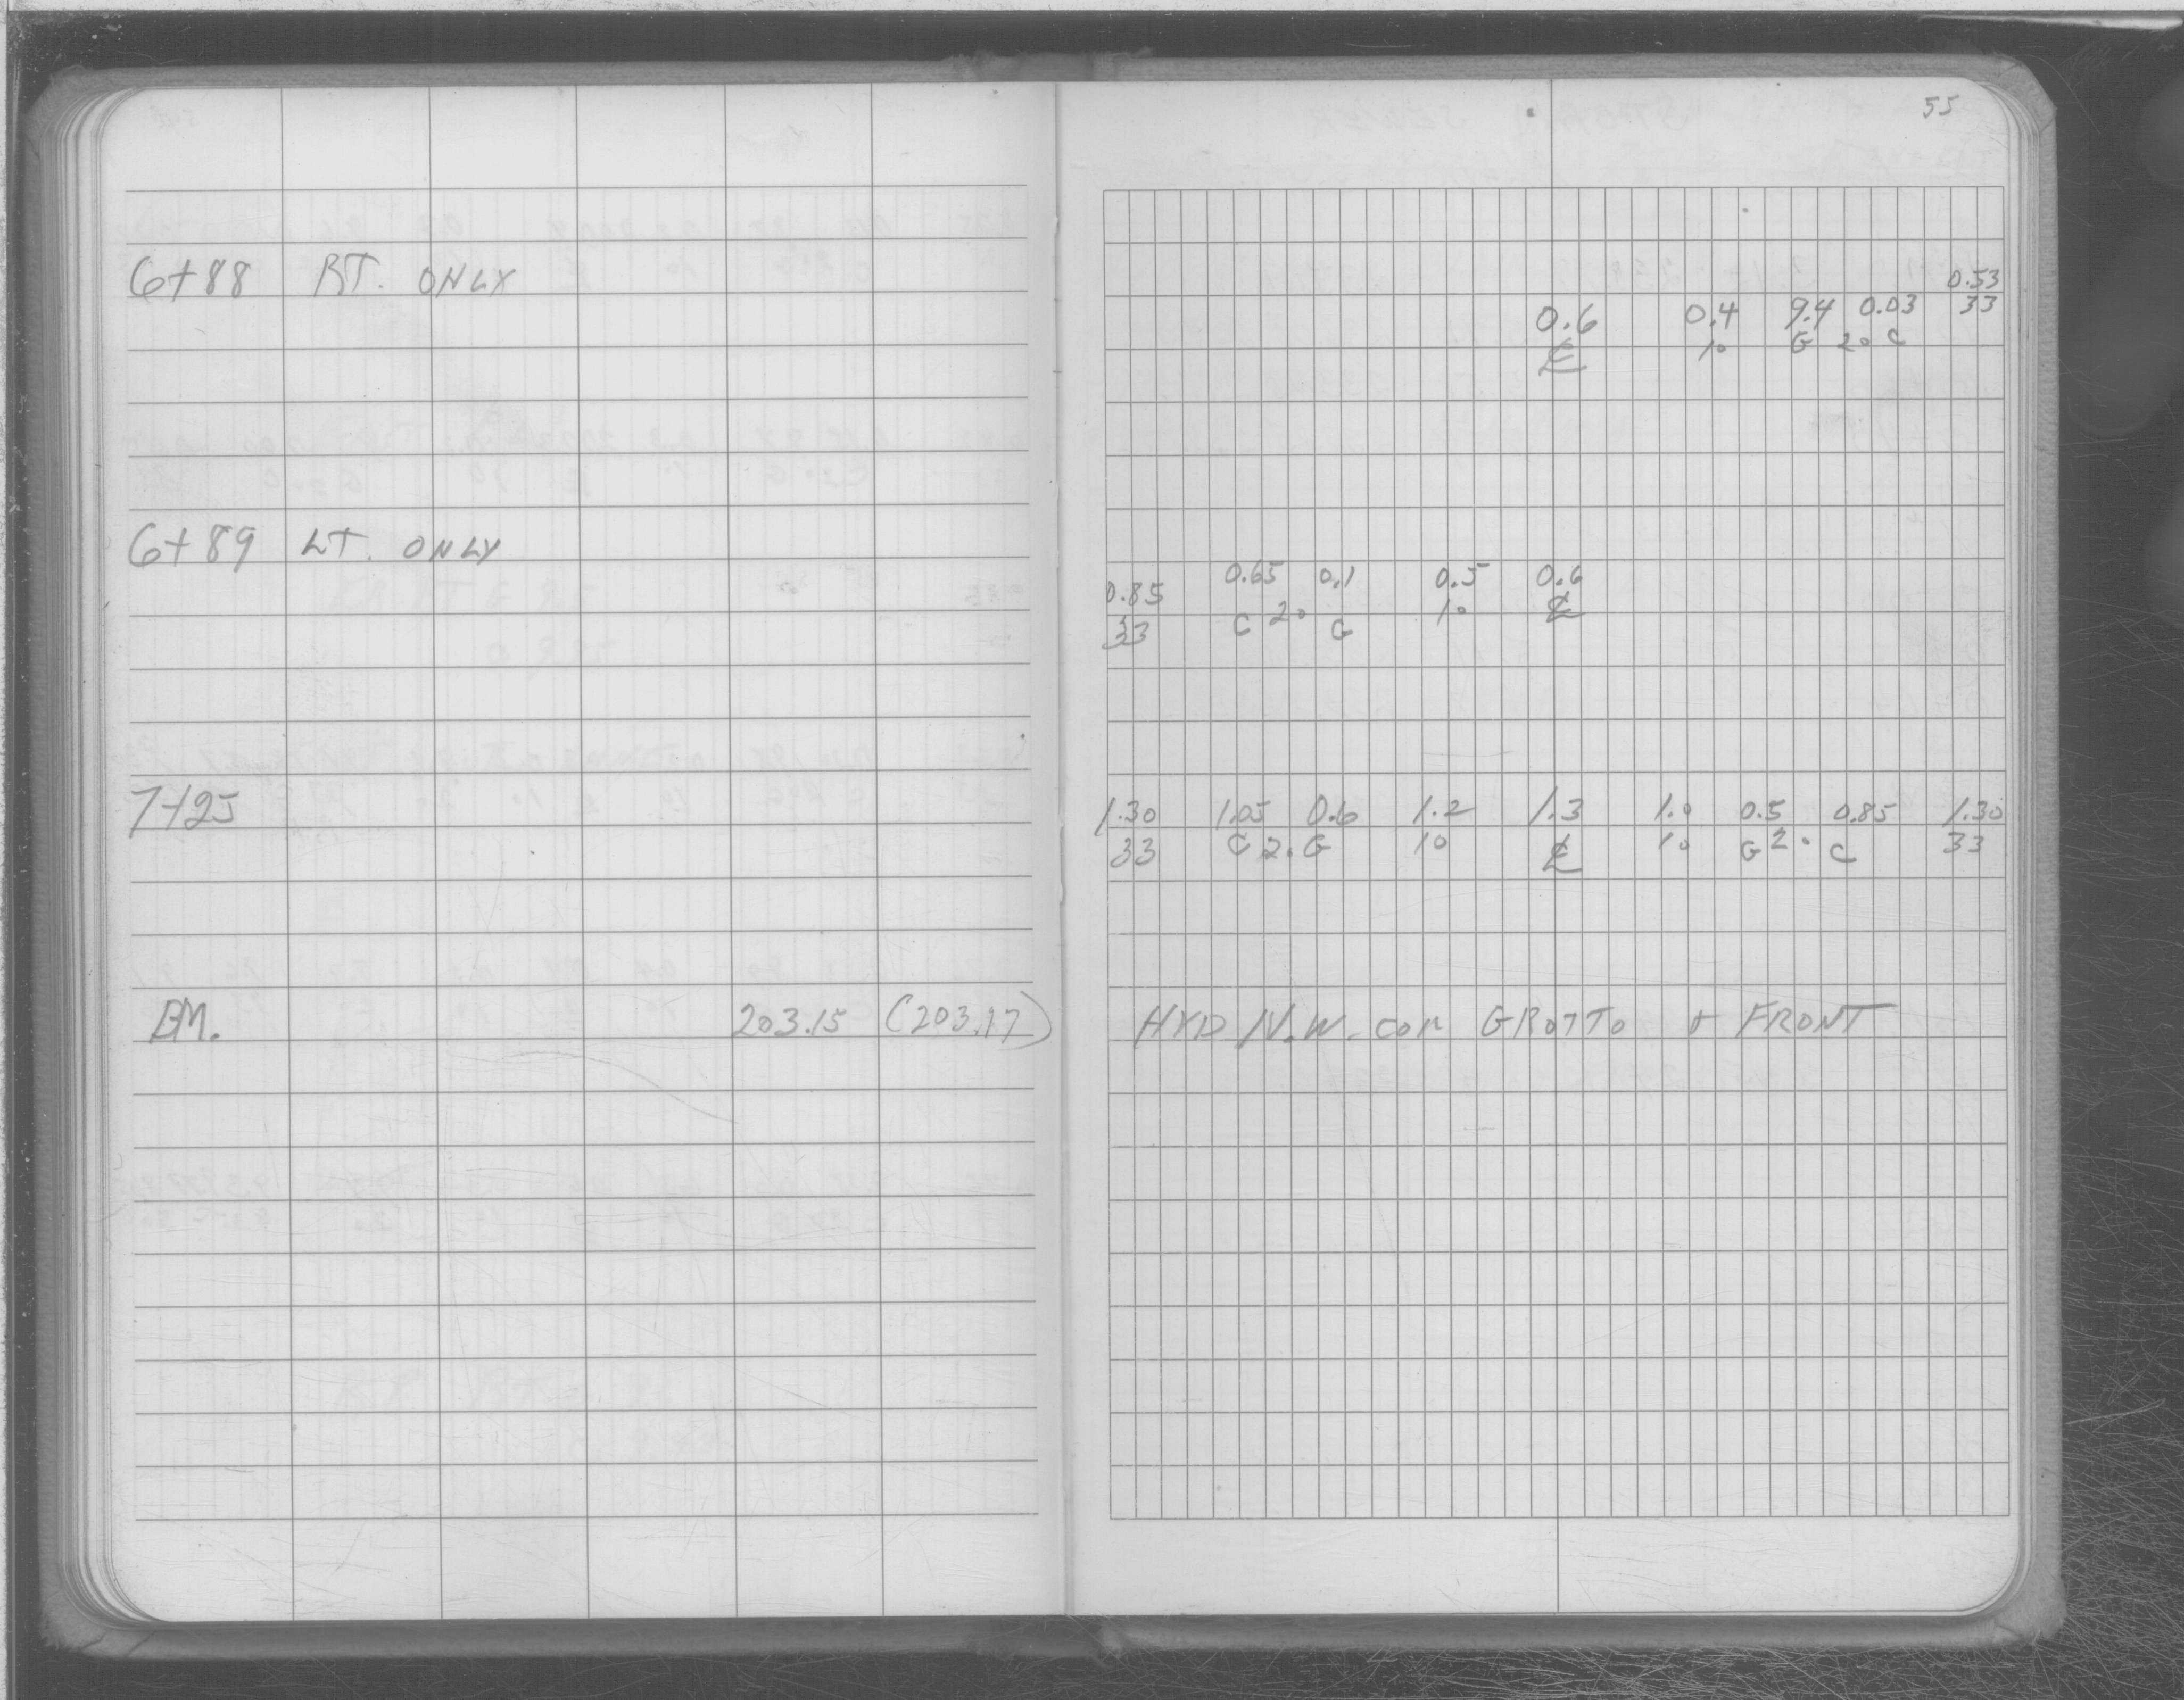 55
6+88 RT. ONLY
0.53
0.6 0.4 9.4 0.03 33
℄ 10 G 20 C
6+89 LT. ONLY
0.85 0.65 0.1 0.5 0.6
33 C 20 G 10 ℄
7+25 1.30 1.05 0.6 1.2 1.3 1.0 0.5 0.85 1.30
33 C 20 G 10 ℄ 10 G 20 C 33
BM. 203.15 (203.17) HYD N.W. COR GROTTO & FRONT